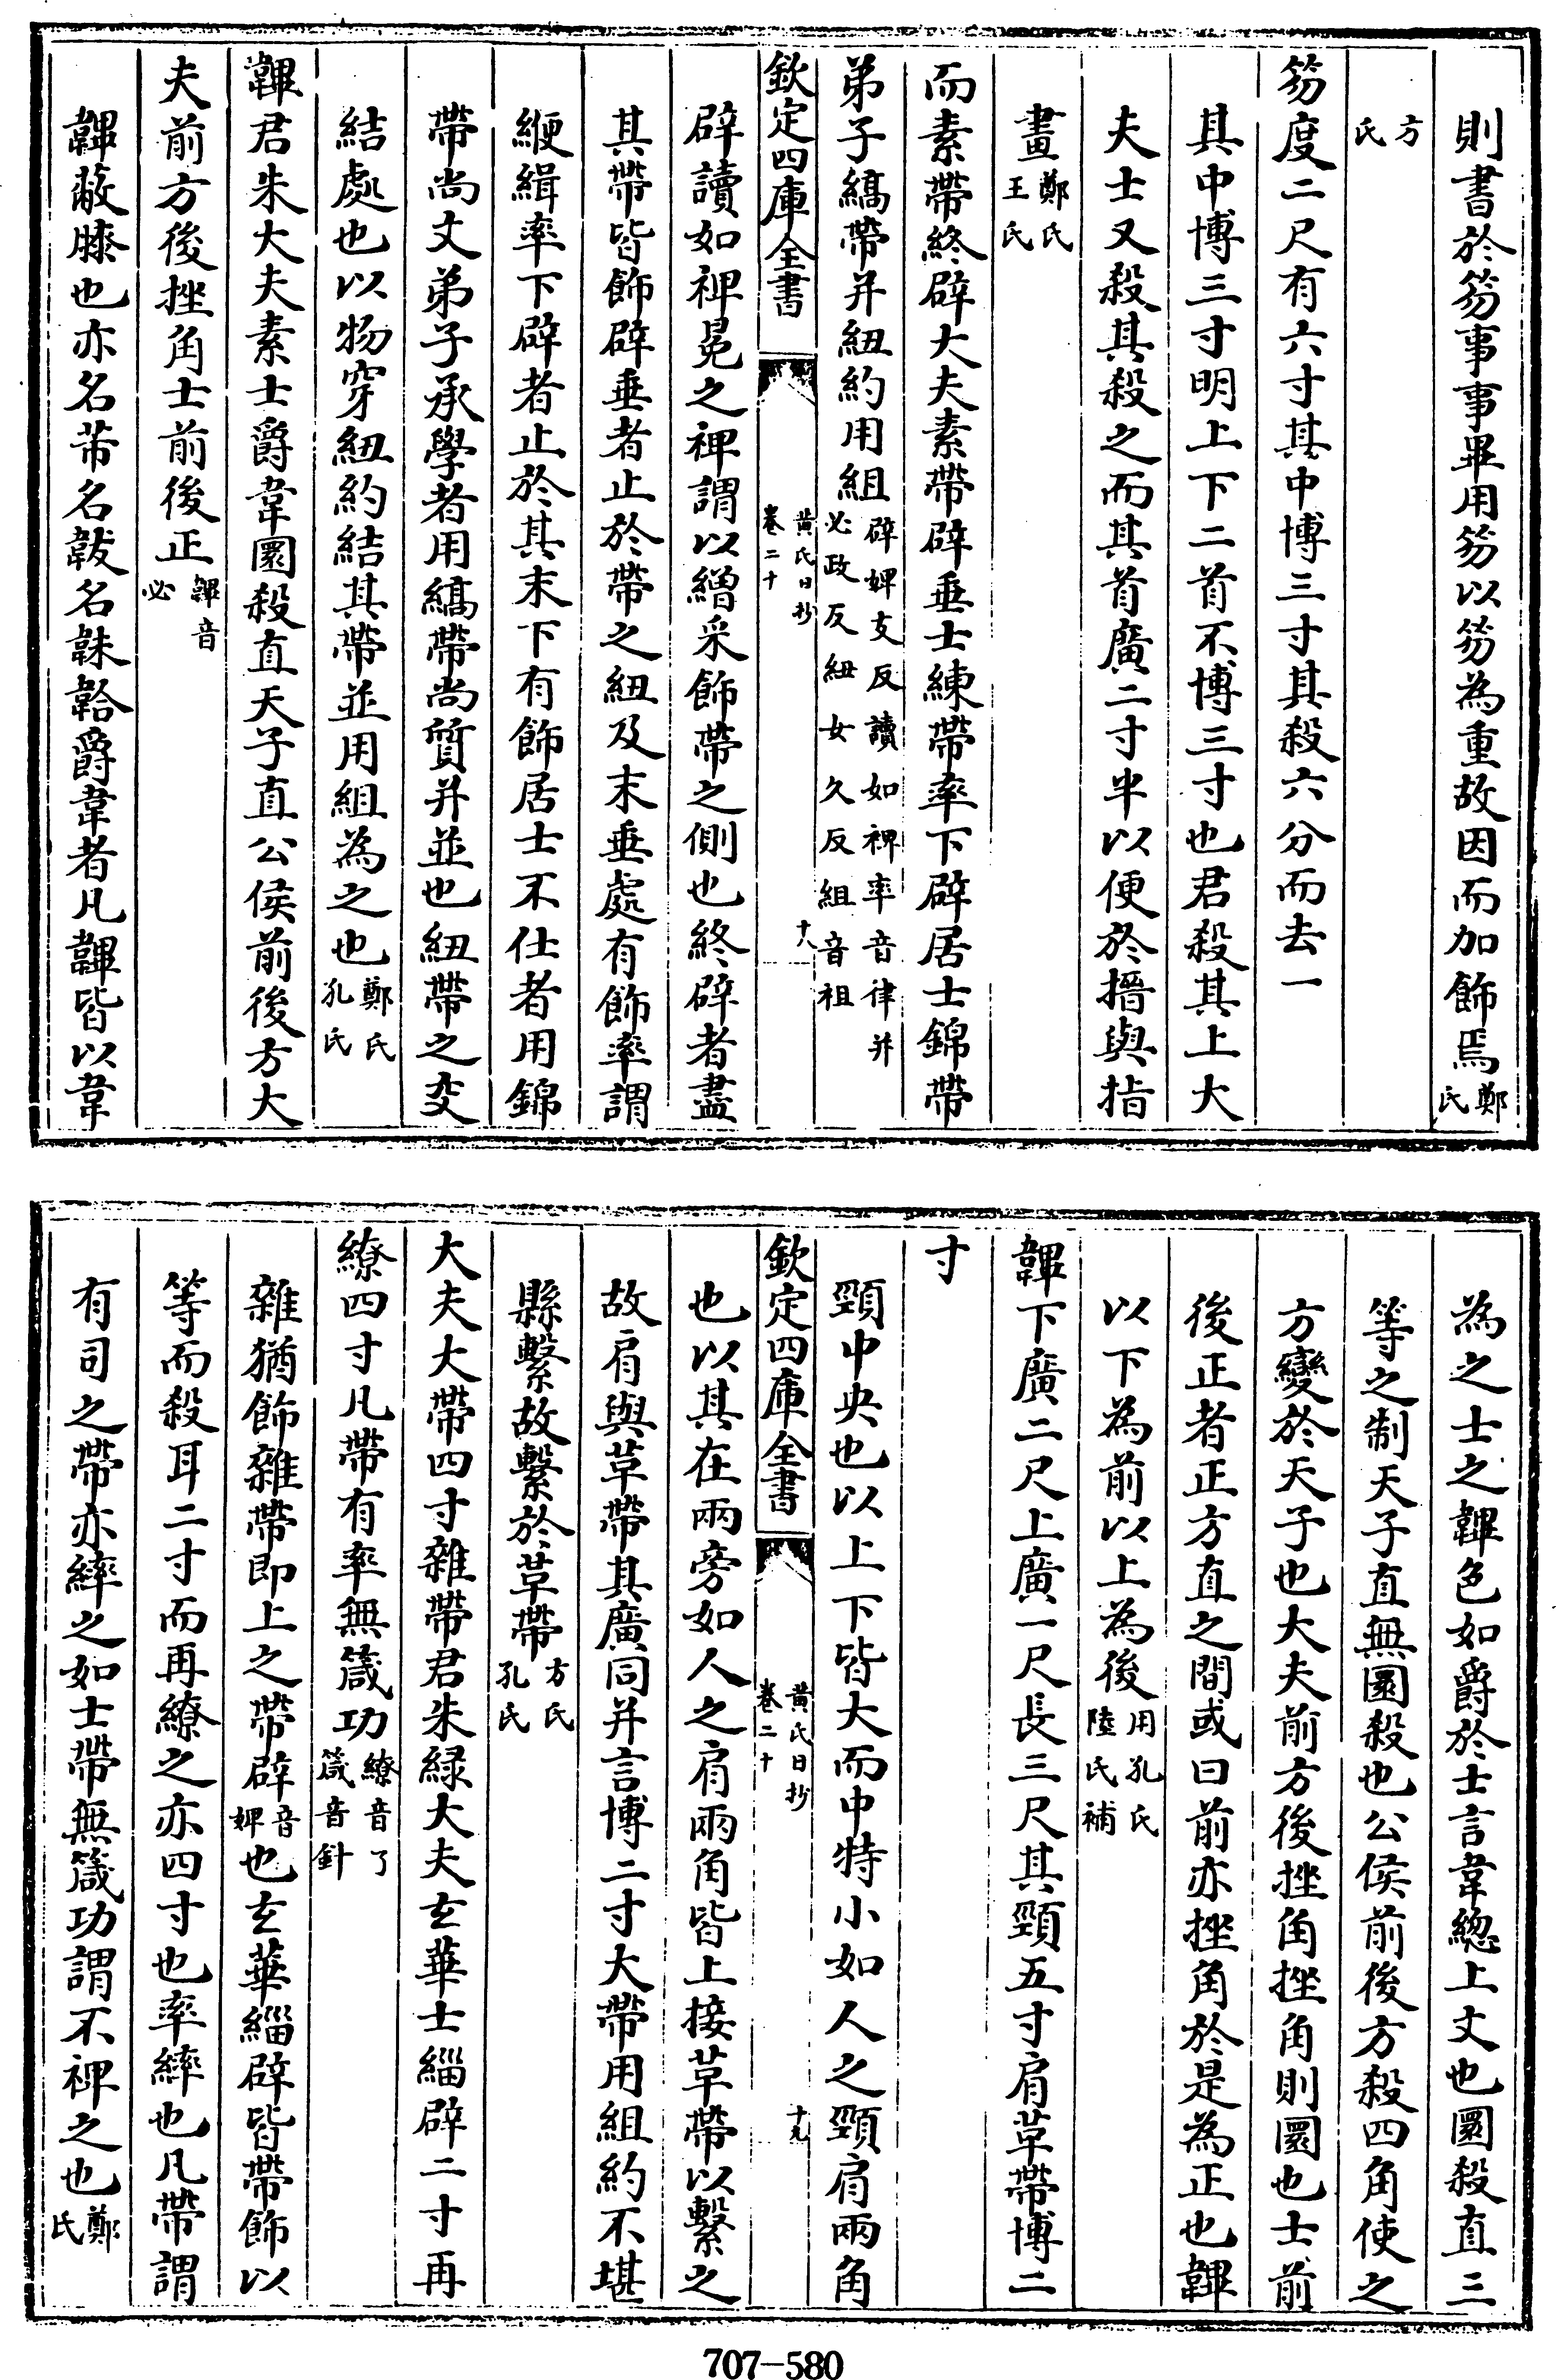 則書於笏事事畢用笏以笏為重故因而加飾焉鄭氏
方氏
笏度二尺有六寸其中博三寸其殺六分而去一
其中博三寸明上下二首不博三寸也君殺其上大
夫士又殺其殺之而其首廣二寸半以便於搢與指
畫鄭氏王氏
而素帶終辟大夫素帶辟垂士練帶率下辟居士錦帶
弟子縞帶并紐約用組辟婢支反讀如裨率音律并必政反紐女久反組音祖
欽定四庫全書 黄氏日抄卷二十 十八
辟讀如裨冕之裨謂以繒采飾帶之側也終辟者盡
其帶皆飾辟垂者止於帶之紐及末垂處有飾率謂
緶緝率下辟者止於其末下有飾居士不仕者用錦
帶尚文弟子承學者用縞帶尚質并並也紐帶之交
結處也以物穿紐約結其帶並用組為之也鄭氏孔氏
韠君朱大夫素士爵韋圜殺直天子直公侯前後方大
夫前方後挫角士前後正韠音必
韠蔽膝也亦名芾名韍名韎韐爵韋者凡韠皆以韋
為之士之韠色如爵於士言韋總上文也圜殺直三
等之制天子直無圜殺也公侯前後方殺四角使之
方變於天子也大夫前方後挫角挫角則圜也士前
後正者正方直之間或曰前亦挫角於是為正也韠
以下為前以上為後用孔氏陸氏補
韠下廣二尺上廣一尺長三尺其頸五寸肩革帶博二
寸
頸中央也以上下皆大而中特小如人之頸肩兩角
欽定四庫全書 黄氏日抄卷二十 十九
也以其在兩旁如人之肩兩角皆上接革帶以繫之
故肩與革帶其廣同并言博二寸大帶用組約不堪
縣繫故繫於革帶方氏孔氏
大夫大帶四寸雜帶君朱緑大夫玄華士緇辟二寸再
繚四寸凡帶有率無箴功繚音了箴音針
雜猶飾雜帶即上之帶辟音婢也玄華緇辟皆帶飾以
等而殺耳二寸而再繚之亦四寸也率繂也凡帶謂
有司之帶亦繂之如士帶無箴功謂不裨之也鄭氏
707—580